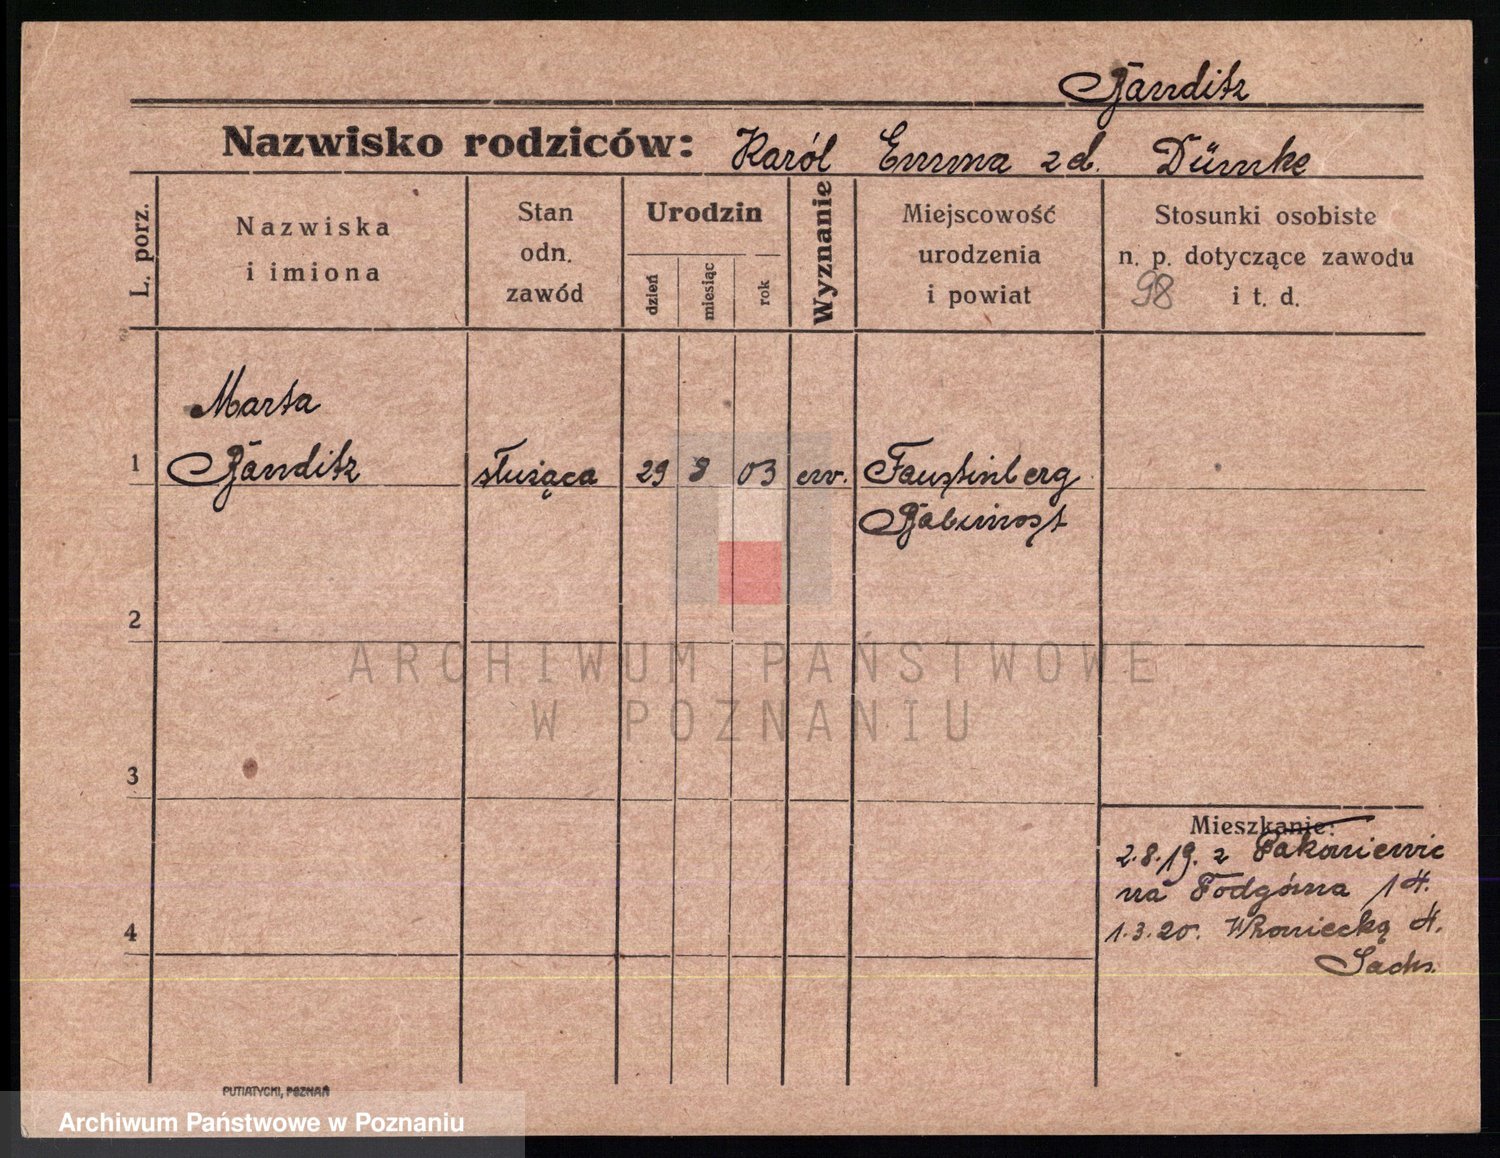 Jänditz
Nazwisko rodziców: Karól Emma zd. Dümke
L. porz.
Nazwiska
i imiona
Stan
odn.
zawód
Urodzin
dzień
miesiąc
rok
Wyznanie
Miejscowość
urodzenia
i powiat
Stosunki osobiste
n. p. dotyczące zawodu
i t. d.
98
Marta
1 Jänditz służąca 29 8 03 ew. Faustinberg
Babimost
2
ARCHIWUM PAŃSTWOWE
W POZNANIU
3
Mieszkanie:
2.8.19. z Rakoniewic
na Podgórna 14.
4
1.3.20. Wroniecką 4.
Sachs.
PUTIATYCKI, POZNAŃ
Archiwum Państwowe w Poznaniu